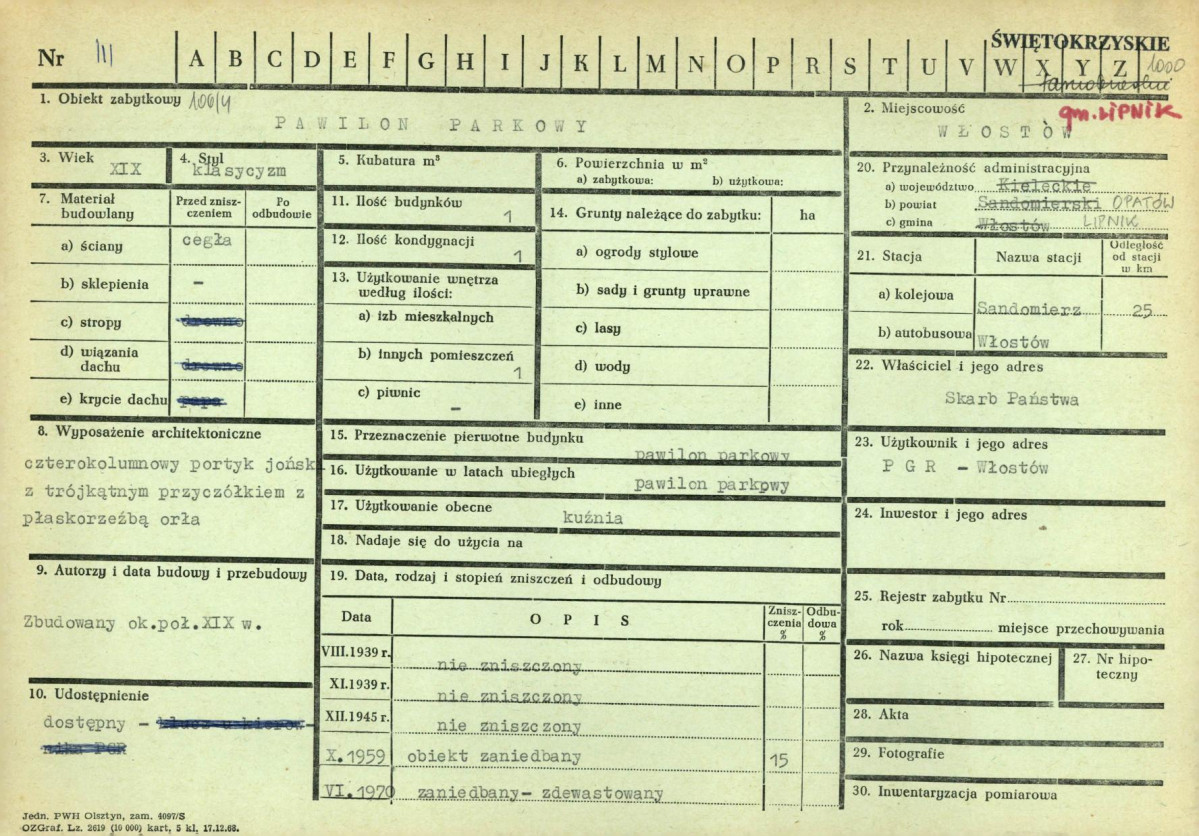 Nr III A B C D E F G H I J K L M N O P R S T U V W X Y Z
ŚWIĘTOKRZYSKIE
1000
1. Obiekt zabytkowy 106/4
PAWILON PARKOWY
2. Miejscowość
gm. LIPNIK
WŁOSTÓW
3. Wiek
XIX
4. Styl
klasycyzm
5. Kubatura m³
6. Powierzchnia w m²
a) zabytkowa: b) użytkowa:
20. Przynależność administracyjna
a) województwo Kieleckie
b) powiat Sandomierski OPATÓW
c) gmina Włostów LIPNIK
7. Materiał budowlany
Przed zniszczeniem
Po odbudowie
a) ściany cegła
b) sklepienia –
c) stropy drewno
d) wiązania dachu drewno
e) krycie dachu papa
11. Ilość budynków
1
12. Ilość kondygnacji
1
13. Użytkowanie wnętrza
według ilości:
a) izb mieszkalnych
b) innych pomieszczeń
1
c) piwnic
–
14. Grunty należące do zabytku: ha
a) ogrody stylowe
b) sady i grunty uprawne
c) lasy
d) wody
e) inne
21. Stacja Nazwa stacji
Odległość
od stacji
w km
a) kolejowa Sandomierz 25
b) autobusowa Włostów
22. Właściciel i jego adres
Skarb Państwa
8. Wyposażenie architektoniczne
czterokolumnowy portyk jońsk
z trójkątnym przyczółkiem z
płaskorzeźbą orła
15. Przeznaczenie pierwotne budynku
pawilon parkowy
16. Użytkowanie w latach ubiegłych
pawilon parkowy
17. Użytkowanie obecne
kuźnia
18. Nadaje się do użycia na
23. Użytkownik i jego adres
PGR – Włostów
24. Inwestor i jego adres
9. Autorzy i data budowy i przebudowy
Zbudowany ok.poł.XIX w.
19. Data, rodzaj i stopień zniszczeń i odbudowy
Data OPIS
Znisz-
czenia
%
Odbu-
dowa
%
VIII.1939 r. nie zniszczony
XI.1939 r. nie zniszczony
XII.1945 r. nie zniszczony
X.1959 obiekt zaniedbany 15
VI.1970 zaniedbany- zdewastowany
10. Udostępnienie
dostępny – klucz u kierow-
nika PGR
25. Rejestr zabytku Nr
rok miejsce przechowywania
26. Nazwa księgi hipotecznej
27. Nr hipo-
teczny
28. Akta
29. Fotografie
30. Inwentaryzacja pomiarowa
Jedn. PWH Olsztyn, zam. 4097/S
OZGraf. Lz. 2619 (10 000) kart, 5 kl, 17.12.68.